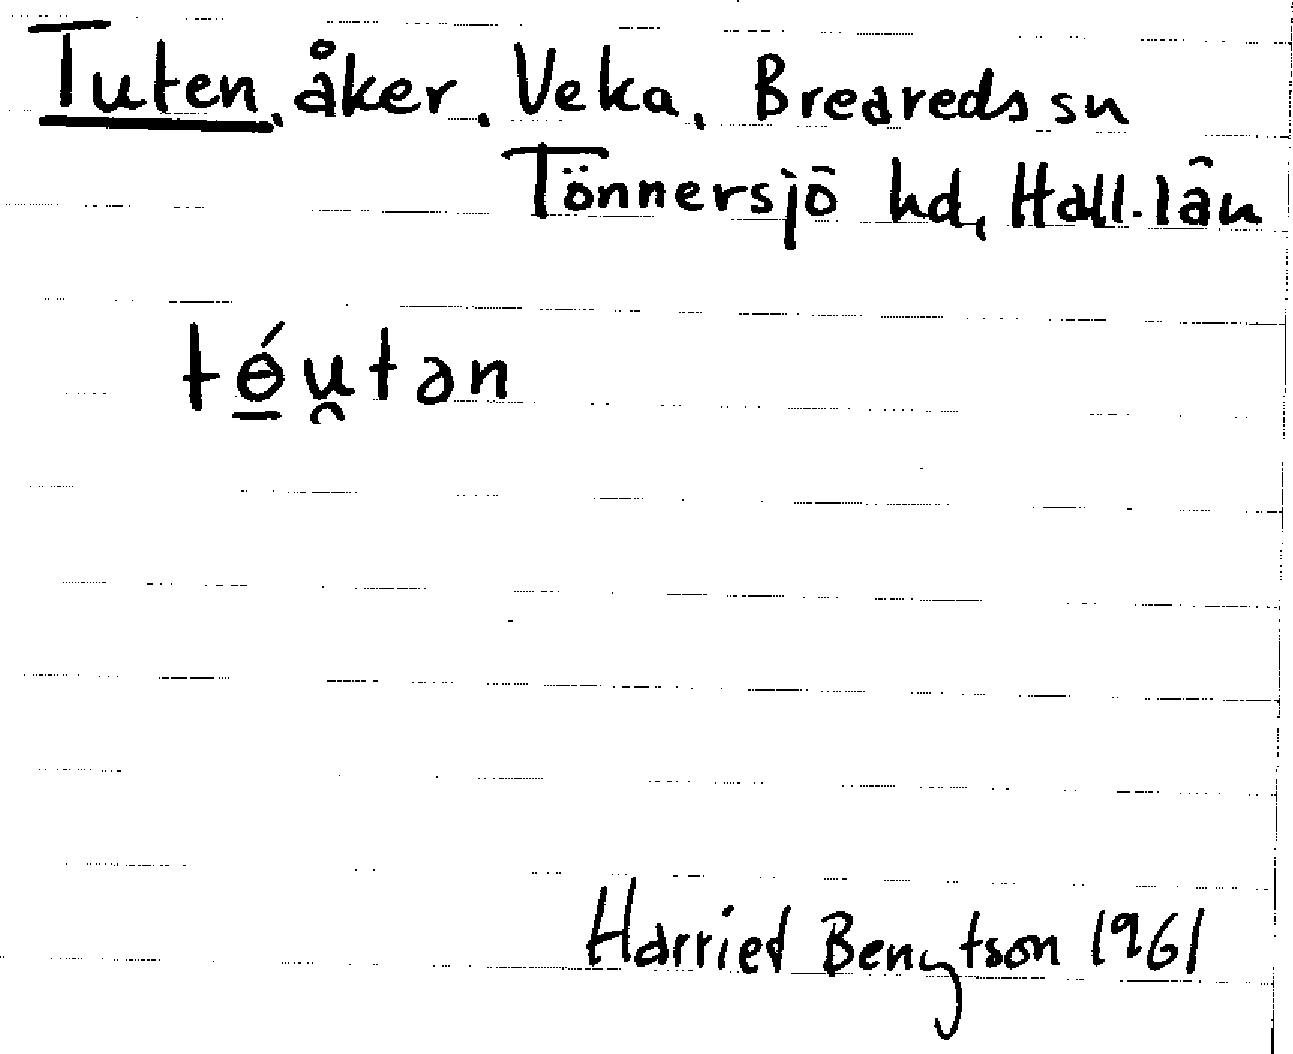 Tuten, åker, Veka, Breareds sn
Tönnersjö hd, Hall. län
tɵ́u̯tən
Harriet Bengtson 1961